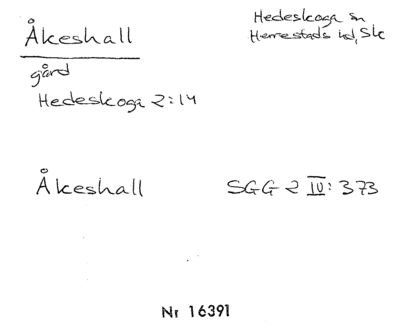 Åkeshall
Hedeskoga sn
Herrestads hd, Sk
gård
Hedeskoga 2:14
Åkeshall SGG 2 IV: 373
Nr 16391